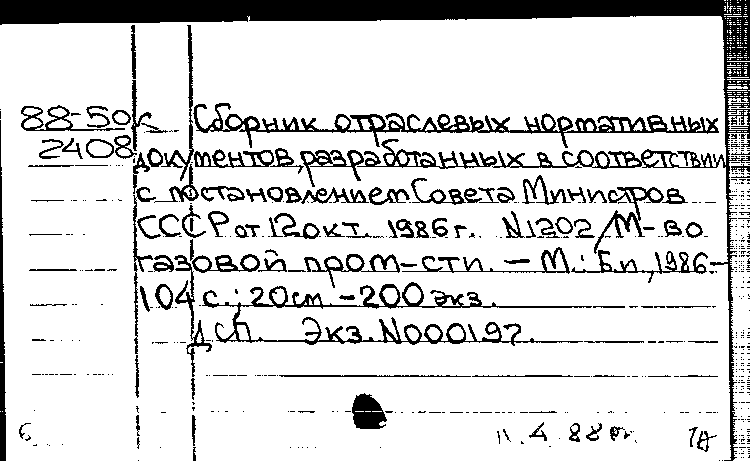 88-50к Сборник отраслевых нормативных
2408 документов, разработанных в соответствии
с постановлением Совета Министров
СССР от 12 окт. 1986 г. N1202 / М-во
газовой пром-сти. — М.: Б.и., 1986.—
104 с.; 20 см. — 200 экз.
ДСП. Экз. N000197.
6 11.4.88